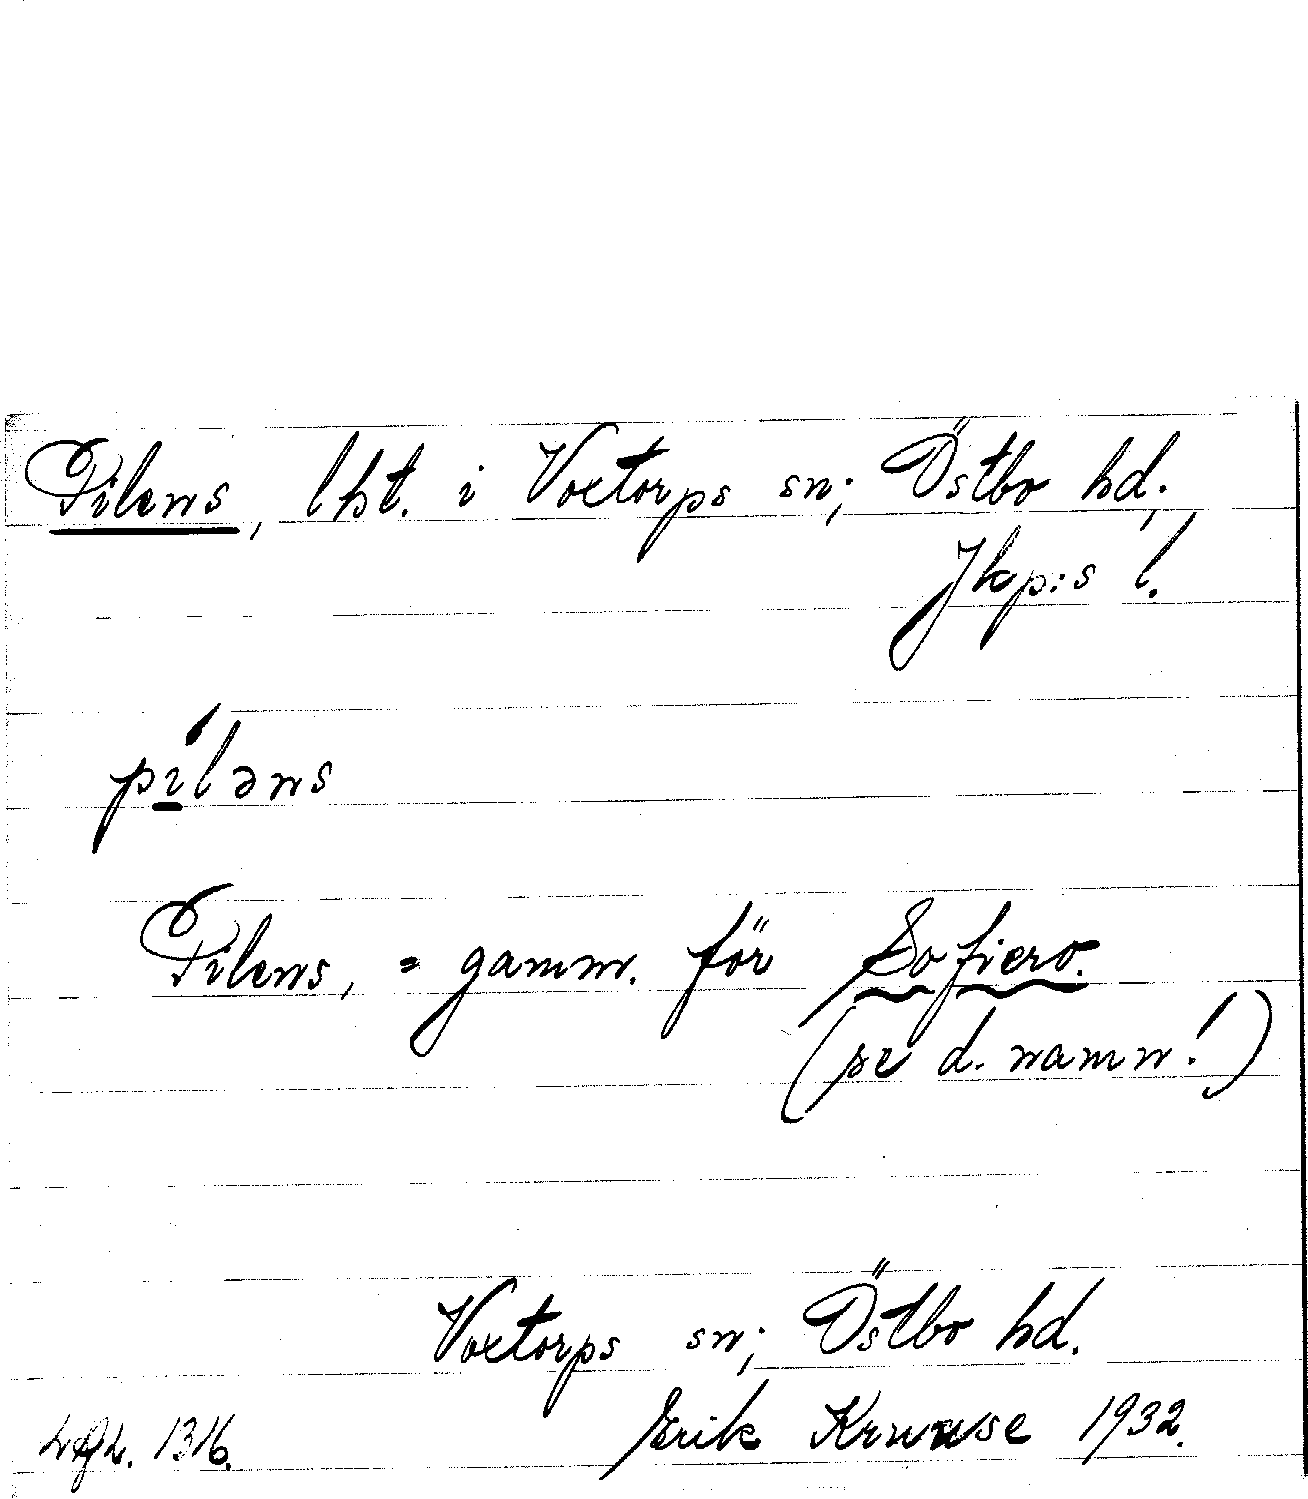 Pilens, lht. i Voxtorps sn; Östbo hd.
Jkp:s l.
píləns
Pilens, = gamm. för Sofiero.
(se d. namn!)
Voxtorps sn; Östbo hd.
Erik Kruuse 1932.
1316.